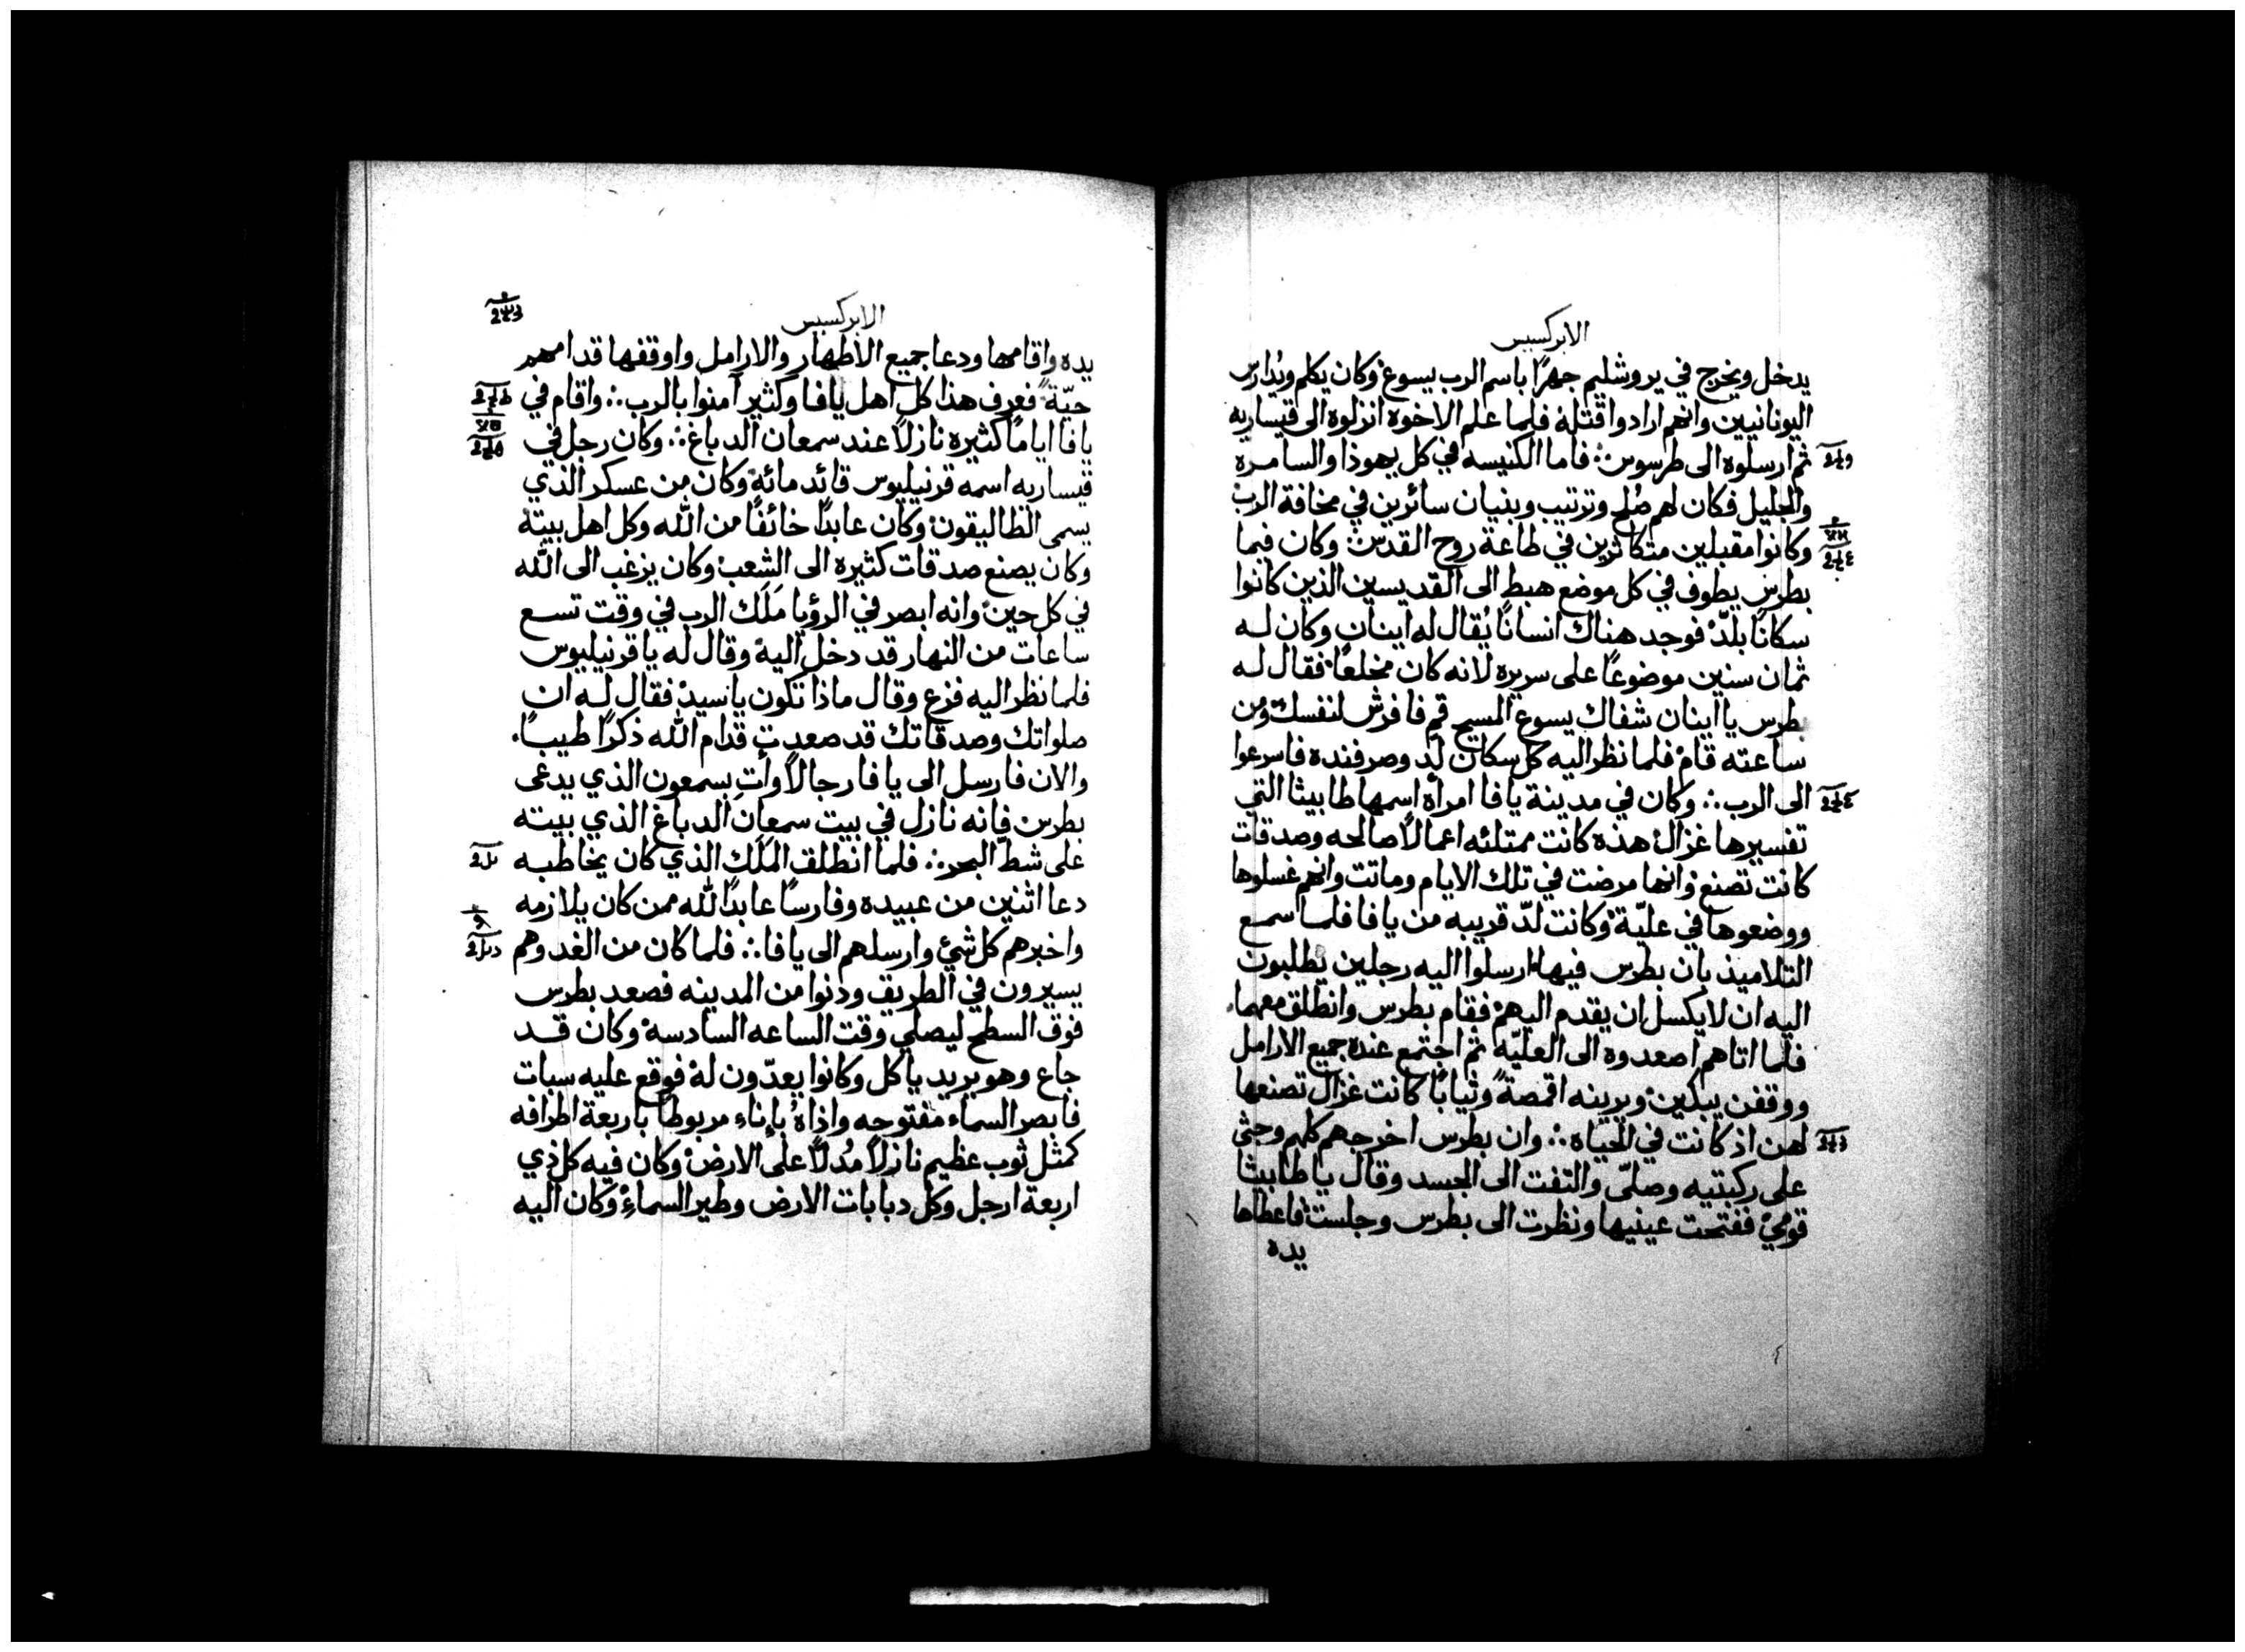 الابركسيس
يدخل ويخرج في يروشليم جهرًا باسم الرب يسوع وكان يكلم ويُدارس
اليونانيين وانهم ارادوا قتله فلما علم الاخوه انزلوه الى قيساريه
ثم ارسلوه الى طرسوس ∴ فاما الكنيسه في كل يهوذا والسامره
والجليل فكان لهم صُلح وترتيب وبنيان سائرين في مخافة الرب
وكانوا مقبلين متكاثرين في طاعة روح القدس وكان فيما
بطرس يطوف في كل موضع هبط الى القديسين الذين كانوا
سكانًا بلدّ فوجد هناك انسانًا يُقال له اينان وكان له
ثمان سنين موضوعًا على سريره لانه كان مخلعًا فقال له
بطرس يا اينان شفاك يسوع المسيح قم فافرش لنفسك ومن
ساعته قام فلما نظر اليه كل سكان لد وصرفنده فاسرعوا
الى الرب ∴ وكان في مدينة يافا امراه اسمها طابيثا التي
تفسيرها غزال هذه كانت ممتلئه اعمالًا صالحه وصدقات
كانت تصنع وانها مرضت في تلك الايام وماتت وانهم غسلوها
ووضعوها في عليّة وكانت لدّ قريبه من يافا فلما سمع
التلاميذ بان بطرس فيها ارسلوا اليه رجلين يطلبون
اليه ان لا يكسل ان يقدم اليهم فقام بطرس وانطلق معهما
فلما اتاهم اصعدوه الى العليّه ثم اجتمع عنده جميع الارامل
ووقفن يبكين ويرينه اقمصةً وثيابًا كانت غزال تصنعها
لهن اذ كانت في الحياه ∴ وان بطرس اخرجهم كلهم وجثى
على ركبتيه وصلّى والتفت الى الجسد وقال يا طابيثا
قومي ففتحت عينيها ونظرت الى بطرس وجلست فاعطاها
يده
الابركسيس
يده واقامها ودعا جميع الاطهار والارامل واوقفها قدامهم
حيّة فعرف هذا كل اهل يافا وكثير آمنوا بالرب ∴ واقام في
يافا ايامًا كثيره نازلًا عند سمعان الدباغ ∴ وكان رجل في
قيساريه اسمه قرنيليوس قائد مائة وكان من عسكر الذي
يسمى الطاليقون وكان عابدًا خائفًا من الله وكل اهل بيته
وكان يصنع صدقات كثيره الى الشعب وكان يرغب الى الله
في كل حين وانه ابصر في الرؤيا مَلَك الرب في وقت تسع
ساعات من النهار قد دخل اليه وقال له يا قرنيليوس
فلما نظر اليه فزع وقال ماذا تكون يا سيد فقال له ان
صلواتك وصدقاتك قد صعدت قدام الله ذكرًا طيبًا
والان فارسل الى يافا رجالًا وأتِ بسمعون الذي يدعى
بطرس فانه نازل في بيت سمعان الدباغ الذي بيته
على شطّ البحر ∴ فلما انطلق المَلَك الذي كان يخاطبه
دعا اثنين من عبيده وفارسًا عابدًا لله ممن كان يلازمه
واخبرهم كل شئ وارسلهم الى يافا ∴ فلما كان من الغد وهم
يسيرون في الطريق ودنوا من المدينه فصعد بطرس
فوق السطح ليصلي وقت الساعه السادسة وكان قد
جاع وهو يريد ياكل وكانوا يعدّون له فوقع عليه سبات
فابصر السماء مفتوحه واذاهُ بإناء مربوطًا باربعة اطرافه
كمثل ثوب عظيم نازلًا مُدلًا على الارض وكان فيه كل ذي
اربعة ارجل وكل دبابات الارض وطير السماءِ وكان اليه